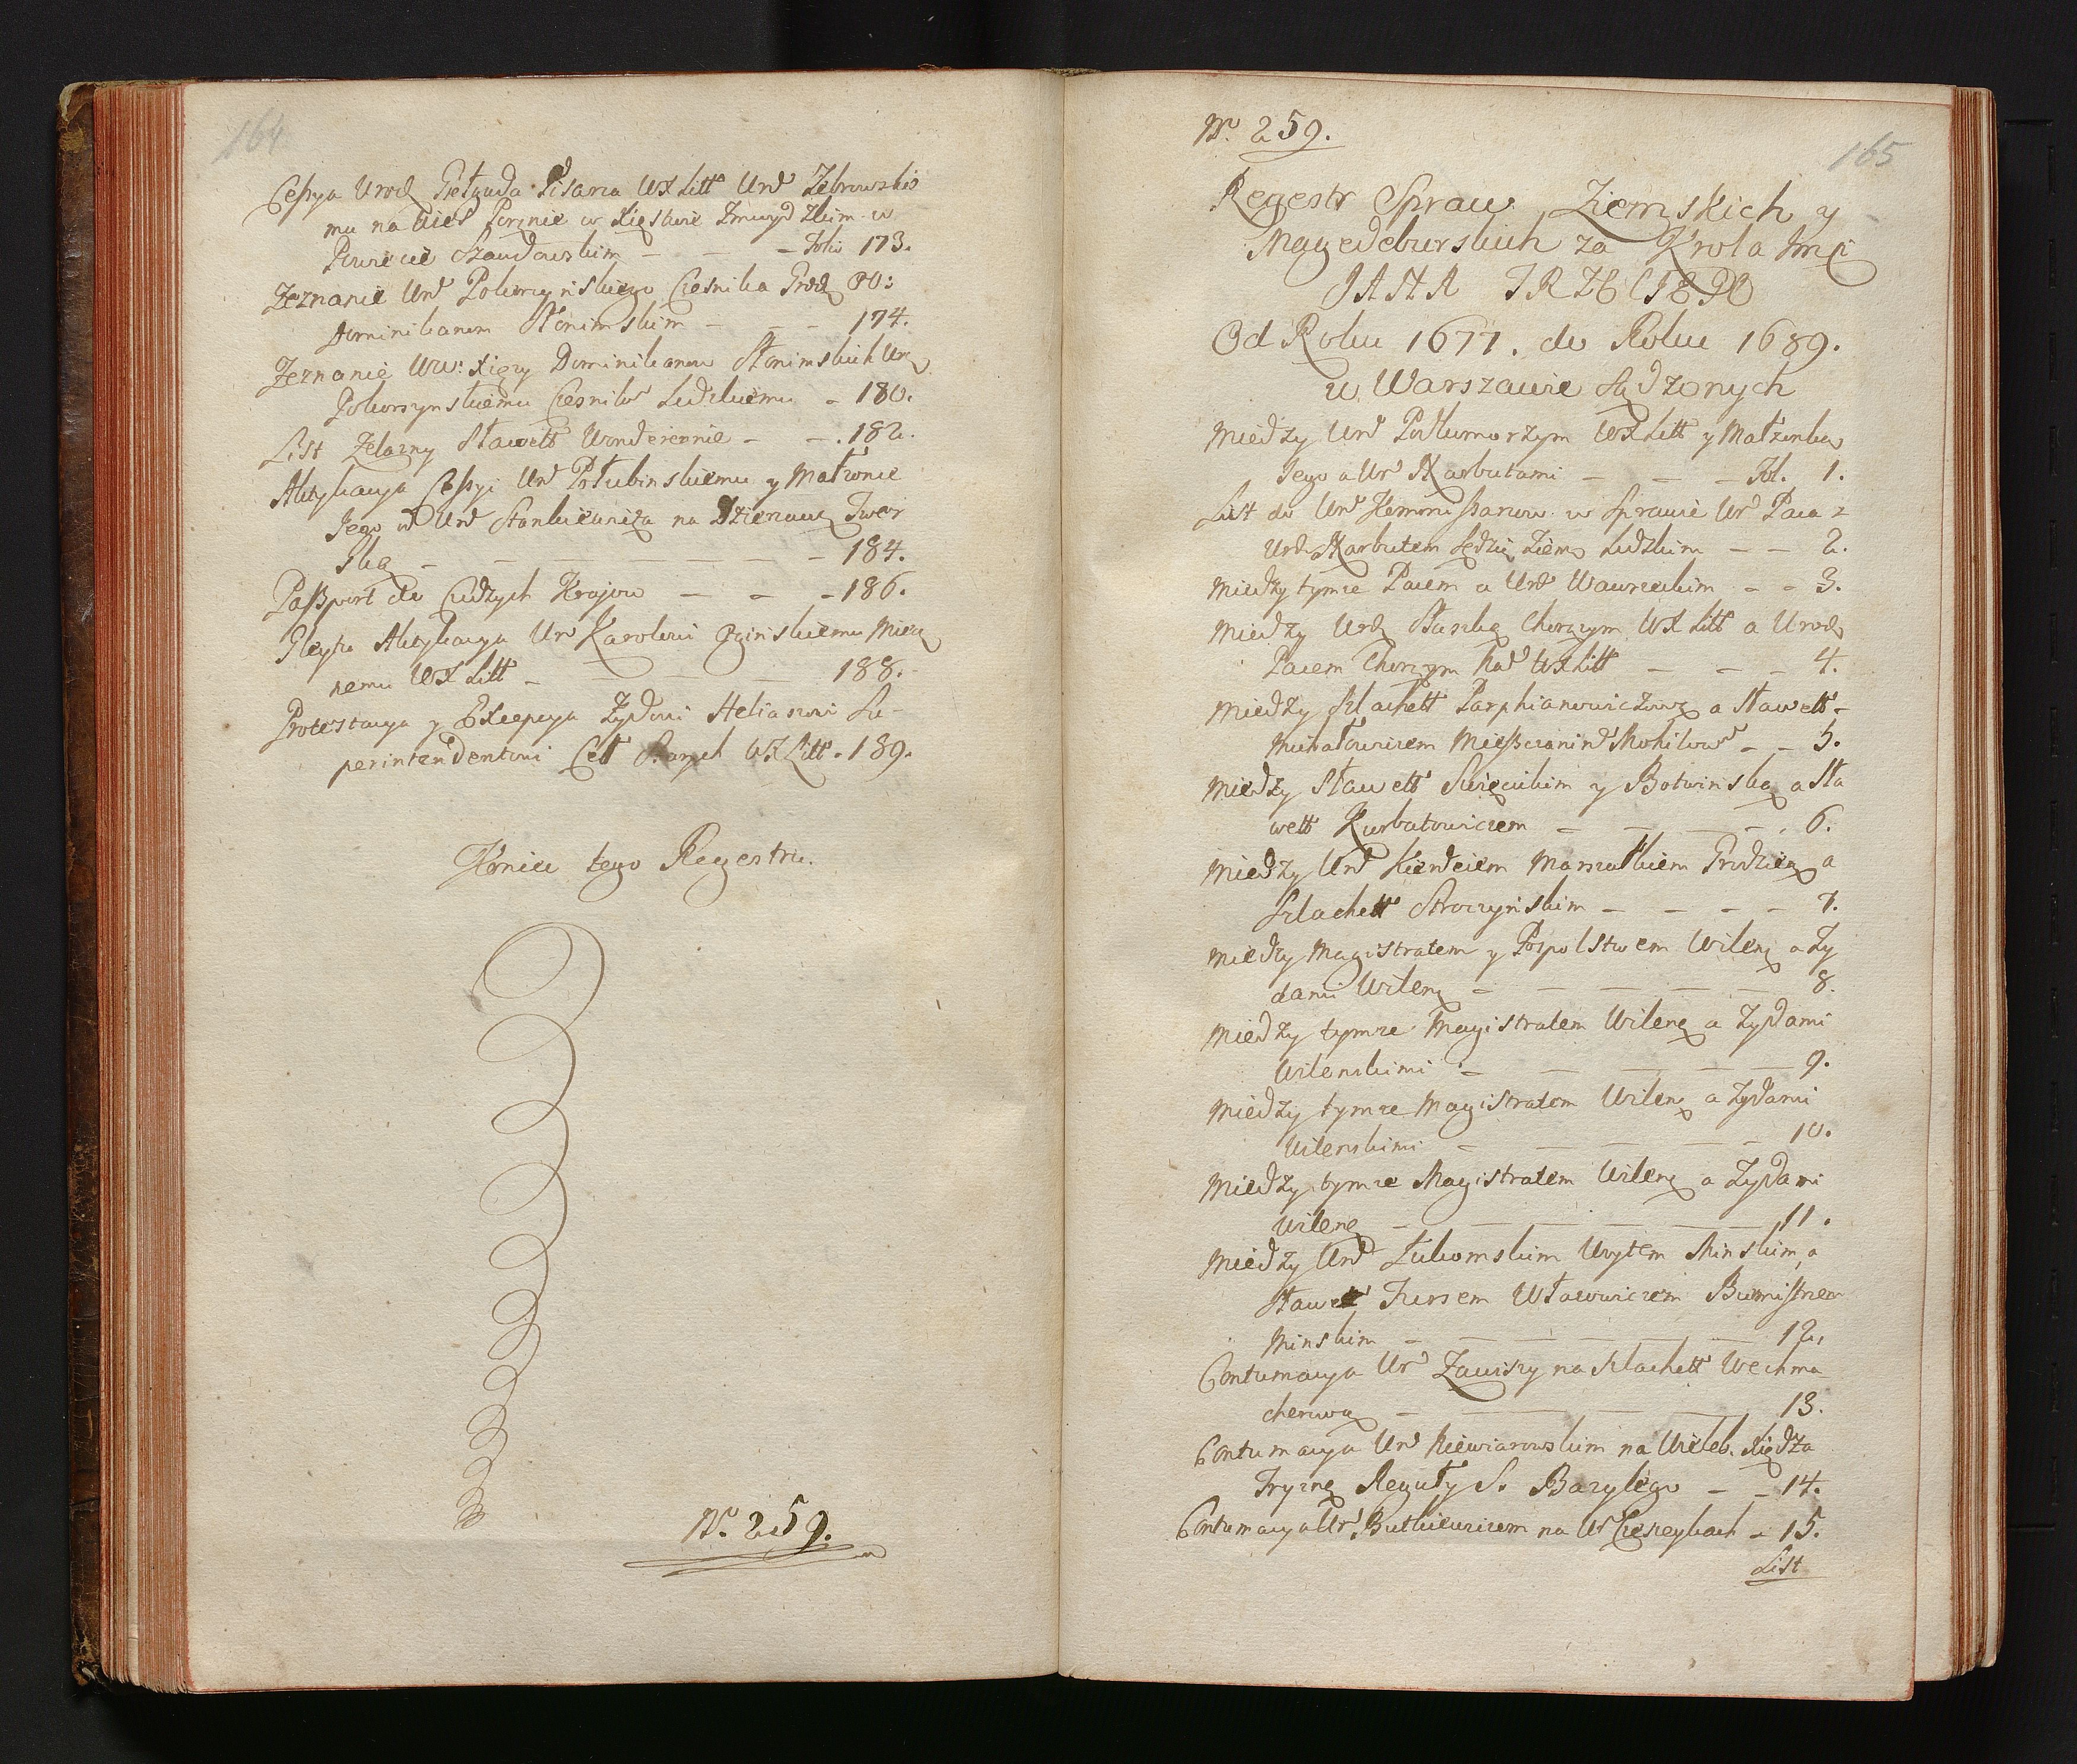 164
Cessya Urodz Giełguda Pisarza WX Litt Urod Zebrowskie
mu na Wieś Porznie w Xięstwie Zmuydzkim w
Powiecie Szawdowskim — — — Folio 173.
Zeznanie Urod Pokorszyńskiego Cześnika Grodz OO:
Dominikanom Słonimskim — — — 174.
Zeznanie WW: Xięży Dominikanow Słonimskich Urodz
Pokorszynskiemu Cześniko Lidzkiemu — 180.
List Zelazny Sławett Wonderennie — — 182.
Aktykacya Cessyi Urod Połubinskiemu y Małżonce
Jego od Urod Stankiewicza na Dzierzawę Twer
ską — — — — — 184.
Passport do Cudzych Krajow — — — 186.
Gleytu Aktykacya Ur Karolowi Oginskiemu Miecz
nemu WX Litt — — — — 188.
Protestacya y Excepcya Zydowi Heliaszowi Su-
perintendentowi Cełł Starych WX Litt. 189.
Koniec tego Regestru.
Nr. 259.
Nr. 259.
165
Regestr Spraw Ziemskich y
Magdeburskich za Krola Jmci
JANA TRZECIEGO
Od Roku 1677. do Roku 1689.
w Warszawie Sądzonych
Między Urod Podkomorzym WX Litt y Małżonką
Jego a Ur Narbutami — — — Fol. 1.
List do Urod Kommissarzow w Sprawie Ur Paca z
Urod Narbutem Sędzią Ziems Lidzkim — — 2.
Między tymże Pacem a Urod Wawrzeckim — — 3.
Między Urodz Słuszką Chorążym WX Litt a Urodz
Pacem Chorążym Nad WX Litt — — — 4.
Między Szlachett Parphianowiczową a Sławett
Murałowiczem Mieszczanind Mohilow — — 5.
Między Sławett Swięcickim y Botwinską a Sła
wett Kurbatowiczem — — — — 6.
Między Urod Kierdeiem Marszałkiem Grodzień a
Szlachett Stroczyńskim — — — — 7.
Między Magistratem y Pospolstwem Wileńs a Zy
dami Wileńs — — — — — 8.
Między tymże Magistratem Wileńs a Zydami
Wilenskimi — — — — — 9.
Między tymże Magistratem Wileńs a Zydami
Wilenskimi — — — — — 10.
Między tymże Magistratem Wileńs a Zydami
Wileńs — — — — — — 11.
Między Urod Łukomskim Woytem Minskim, a
Sławet Fursem Własowiczem Burmistrzem
Minskim — — — — — — 12.
Contumacya Ur Zawiszy na Szlachett Wechma
cherową — — — — — 13.
Contumacya Urod Niewiarowskim na Wieleb. Xiędza
Tryznę Reguły S. Bazylego — — 14.
Contumacya Ur Butkiewiczem na Ur Czeczeykach — 15.
List